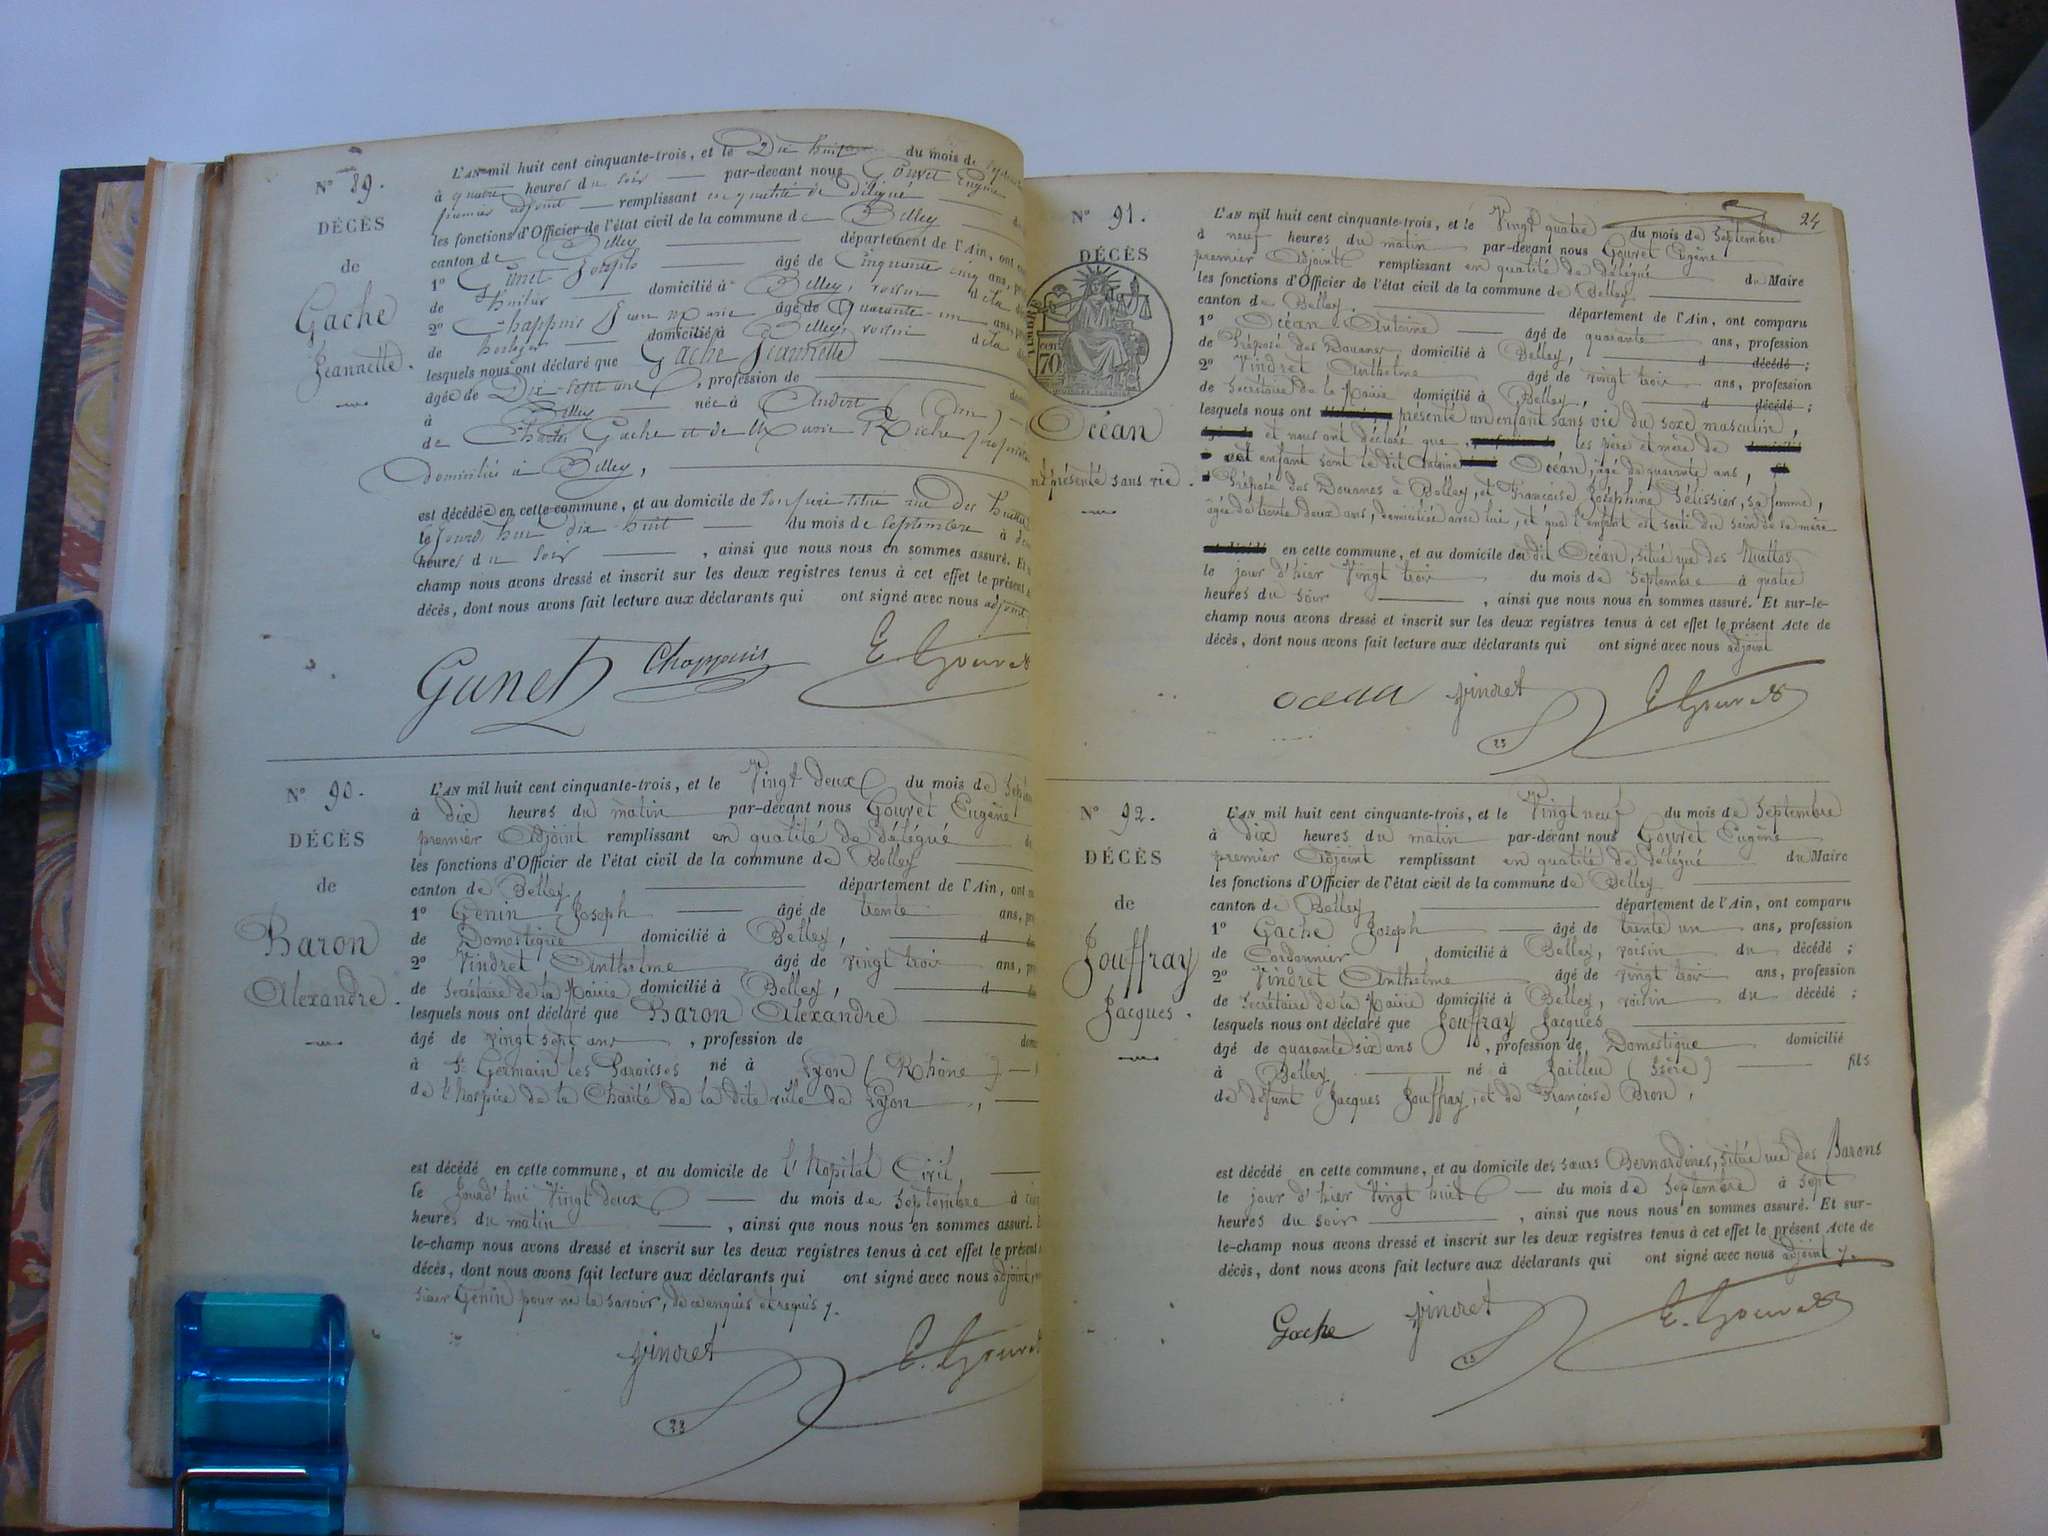 N° 89.
DÉCÈS
de
Gache
Jeannette.
L'AN mil huit cent cinquante-trois, et le Dix huit du mois de
à quatre heures du soir par-devant nous Gouvet Eugène
premier adjoint remplissant en qualité de délégué
les fonctions d'Officier de l'état civil de la commune de Belley
canton de Belley département de l'Ain, ont
1° Gunet Joseph âgé de Cinquante cinq ans,
de domicilié à Belley, voisin de la
2° Chappuis Jean Marie âgé de Quarante un ans,
de horloger domicilié à Belley, voisin de la
lesquels nous ont déclaré que Gache Jeannette
âgée de Dix-sept ans, profession de
à Belley née à (Ain)
de Charles Gache et de Marie Roche
Domiciliés à Belley,
est décédée en cette commune, et au domicile de rue des
le jourd'hui dix huit du mois de Septembre à
heures du soir, ainsi que nous nous en sommes assuré. Et
champ nous avons dressé et inscrit sur les deux registres tenus à cet effet le présent
décès, dont nous avons fait lecture aux déclarants qui ont signé avec nous adjoint
Gunet Chappuis E. Gouvet
N° 90.
DÉCÈS
de
Baron
Alexandre.
L'AN mil huit cent cinquante-trois, et le Vingt deux du mois de
à dix heures du matin par-devant nous Gouvet Eugène
premier Adjoint remplissant en qualité de délégué
les fonctions d'Officier de l'état civil de la commune de Belley
canton de Belley département de l'Ain, ont
1° Genin Joseph âgé de trente ans,
de Domestique domicilié à Belley, d
2° Vindret Anthelme âgé de vingt trois ans,
de Secrétaire de la Mairie domicilié à Belley, d
lesquels nous ont déclaré que Baron Alexandre
âgé de vingt sept ans, profession de
à St Germain les Paroisses né à Lyon (Rhône)
de l'hospice de la Charité de la dite ville de Lyon,
est décédé en cette commune, et au domicile de l'Hopital Civil
le jourd'hui Vingt deux du mois de Septembre à
heures du matin, ainsi que nous nous en sommes assuré.
le-champ nous avons dressé et inscrit sur les deux registres tenus à cet effet le présent
décès, dont nous avons fait lecture aux déclarants qui ont signé avec nous adjoint,
sieur Genin pour ne le savoir, de ce enquis et requis
Vindret E. Gouvet
23
24
N° 91.
DÉCÈS
TIMBRE
70
Océan
présenté sans vie.
L'AN mil huit cent cinquante-trois, et le Vingt quatre du mois de Septembre
à neuf heures du matin par-devant nous Gouvet Eugène
premier Adjoint remplissant en qualité de délégué du Maire
les fonctions d'Officier de l'état civil de la commune de Belley
canton de Belley département de l'Ain, ont comparu
1° Océan Antoine âgé de quarante ans, profession
de Préposé des Douanes domicilié à Belley, d décédé ;
2° Vindret Anthelme âgé de vingt trois ans, profession
de Secrétaire de la Mairie domicilié à Belley, d décédé ;
lesquels nous ont présenté un enfant sans vie du sexe masculin,
et nous ont déclaré que les père et mère de
cet enfant sont le dit Antoine Océan, âgé de quarante ans,
Préposé des Douanes à Belley, et Françoise Joséphine Pélissier, sa femme,
âgée de trente deux ans, domiciliée avec lui, et que l'enfant est sorti du sein de sa mère
en cette commune, et au domicile du dit Océan, situé rue des Muettes
le jour d'hier Vingt trois du mois de Septembre à quatre
heures du soir, ainsi que nous nous en sommes assuré. Et sur-le-
champ nous avons dressé et inscrit sur les deux registres tenus à cet effet le présent Acte de
décès, dont nous avons fait lecture aux déclarants qui ont signé avec nous adjoint
ocean Vindret E. Gouvet
23
N° 92.
DÉCÈS
de
Jouffray
Jacques.
L'AN mil huit cent cinquante-trois, et le Vingt neuf du mois de Septembre
à dix heures du matin par-devant nous Gouvet Eugène
premier Adjoint remplissant en qualité de délégué du Maire
les fonctions d'Officier de l'état civil de la commune de Belley
canton de Belley département de l'Ain, ont comparu
1° Gache Joseph âgé de trente un ans, profession
de Cordonnier, domicilié à Belley, voisin du décédé ;
2° Vindret Anthelme âgé de vingt trois ans, profession
de Secrétaire de la Mairie domicilié à Belley, voisin du décédé ;
lesquels nous ont déclaré que Jouffray Jacques
âgé de quarante six ans, profession de Domestique domicilié
à Belley né à Jailleu (Isère) fils
de défunt Jacques Jouffray, et de Françoise Bron,
est décédé en cette commune, et au domicile des sœurs Bernardines, situé rue des Barons
le jour d'hier Vingt huit du mois de Septembre à sept
heures du soir, ainsi que nous nous en sommes assuré. Et sur-
le-champ nous avons dressé et inscrit sur les deux registres tenus à cet effet le présent Acte de
décès, dont nous avons fait lecture aux déclarants qui ont signé avec nous adjoint
Gache Vindret E. Gouvet
23